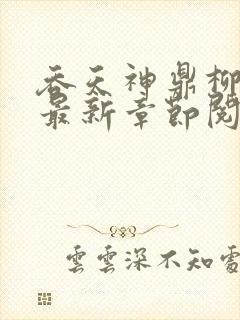 吞天神鼎柳
最新章節閱
雲雲深不知處